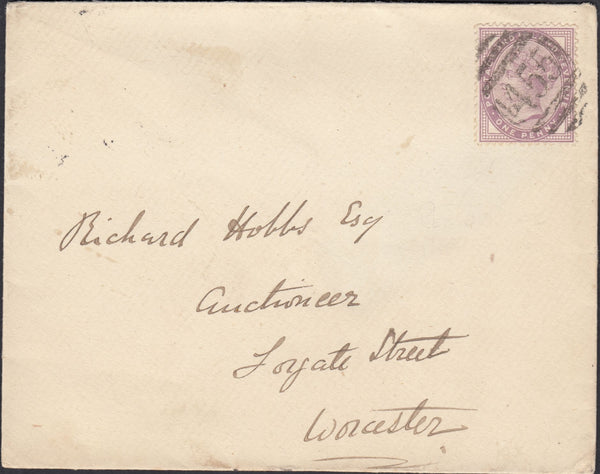 ONE PENNY
Richard Hobbs Esq
Auctioneer
Forgate Street
Worcester